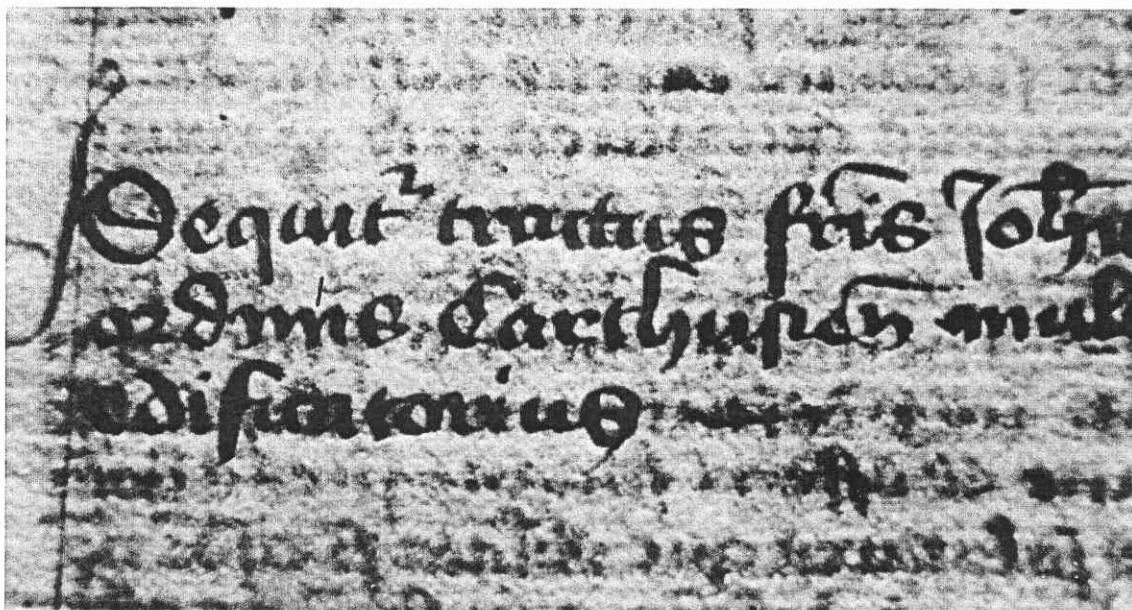 Sequit᷑ tractus fr̄is Joh̄
ordinis Carthusien̄ mul
edificatorius